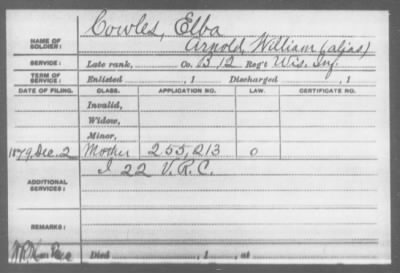 Cowles, Elba
NAME OF SOLDIER: Arnold, William (alias)
SERVICE: Late rank, Co. B 12 Reg't Wis. Inf.
TERM OF SERVICE: Enlisted , 1 Discharged , 1
DATE OF FILING. CLASS. APPLICATION NO. LAW. CERTIFICATE NO.
Invalid,
Widow,
Minor,
1879, Dec. 2 Mother 255,213 O
ADDITIONAL SERVICES: I 22 V. R. C.
REMARKS:
Died , 1 , at